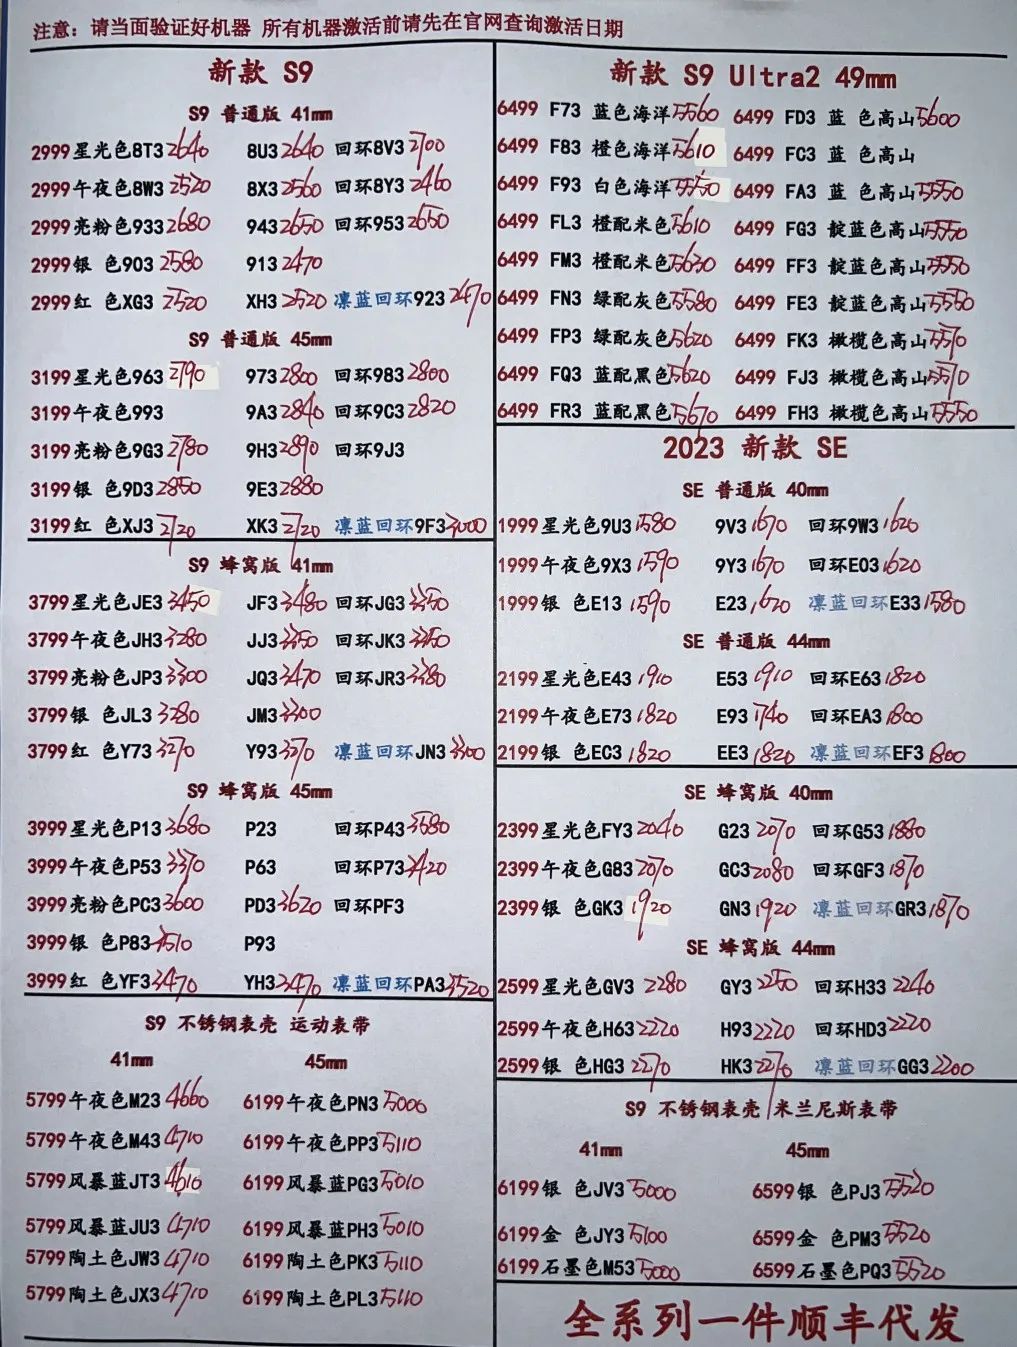 注意: 请当面验证好机器 所有机器激活前请先在官网查询激活日期
新款 S9
S9 普通版 41mm
2999 星光色8T3 2640 8U3 2640 回环8V3 2700
2999 午夜色8W3 2520 8X3 2560 回环8Y3 2460
2999 亮粉色933 2680 943 2650 回环953 2650
2999 银 色903 2580 913 2470
2999 红 色XG3 2520 XH3 2520 凛蓝回环923 2470
S9 普通版 45mm
3199 星光色963 2790 973 2800 回环983 2800
3199 午夜色993 9A3 2840 回环9C3 2820
3199 亮粉色9G3 2780 9H3 2890 回环9J3
3199 银 色9D3 2850 9E3 2880
3199 红 色XJ3 2720 XK3 2720 凛蓝回环9F3 3000
S9 蜂窝版 41mm
3799 星光色JE3 3450 JF3 3480 回环JG3 3350
3799 午夜色JH3 3280 JJ3 3350 回环JK3
3799 亮粉色JP3 3300 JQ3 3470 回环JR3 3380
3799 银 色JL3 3280 JM3 3300
3799 红 色Y73 3270 Y93 3270 凛蓝回环JN3 3300
S9 蜂窝版 45mm
3999 星光色P13 3680 P23 回环P43 3580
3999 午夜色P53 3370 P63 回环P73 3420
3999 亮粉色PC3 3600 PD3 3620 回环PF3
3999 银 色P83 3510 P93
3999 红 色YF3 3470 YH3 3470 凛蓝回环PA3 3520
S9 不锈钢表壳 运动表带
41mm 45mm
5799 午夜色M23 4660 6199 午夜色PN3 5000
5799 午夜色M43 4710 6199 午夜色PP3 5110
5799 风暴蓝JT3 4610 6199 风暴蓝PG3 5010
5799 风暴蓝JU3 4710 6199 风暴蓝PH3 5010
5799 陶土色JW3 4710 6199 陶土色PK3 5110
5799 陶土色JX3 4710 6199 陶土色PL3 5110
新款 S9 Ultra2 49mm
6499 F73 蓝色海洋 5560 6499 FD3 蓝 色高山 5600
6499 F83 橙色海洋 5610 6499 FC3 蓝 色高山
6499 F93 白色海洋 5550 6499 FA3 蓝 色高山 5550
6499 FL3 橙配米色 5610 6499 FG3 靛蓝色高山 5550
6499 FM3 橙配米色 5630 6499 FF3 靛蓝色高山 5550
6499 FN3 绿配灰色 5580 6499 FE3 靛蓝色高山 5550
6499 FP3 绿配灰色 5620 6499 FK3 橄榄色高山 5570
6499 FQ3 蓝配黑色 5620 6499 FJ3 橄榄色高山 5570
6499 FR3 蓝配黑色 5670 6499 FH3 橄榄色高山 5550
2023 新款 SE
SE 普通版 40mm
1999 星光色9U3 1580 9V3 1670 回环9W3 1620
1999 午夜色9X3 1590 9Y3 1670 回环E03 1620
1999 银 色E13 1590 E23 1620 凛蓝回环E33 1580
SE 普通版 44mm
2199 星光色E43 1910 E53 1910 回环E63 1820
2199 午夜色E73 1820 E93 1740 回环EA3 1800
2199 银 色EC3 1820 EE3 1820 凛蓝回环EF3 1800
SE 蜂窝版 40mm
2399 星光色FY3 2040 G23 2070 回环G53 1880
2399 午夜色G83 2070 GC3 2080 回环GF3 1870
2399 银 色GK3 1920 GN3 1920 凛蓝回环GR3 1870
SE 蜂窝版 44mm
2599 星光色GV3 2280 GY3 2250 回环H33 2240
2599 午夜色H63 2220 H93 2220 回环HD3 2220
2599 银 色HG3 2270 HK3 2270 凛蓝回环GG3 2200
S9 不锈钢表壳 米兰尼斯表带
41mm 45mm
6199 银 色JV3 5000 6599 银 色PJ3 5520
6199 金 色JY3 5100 6599 金 色PM3 5520
6199 石墨色M53 5000 6599 石墨色PQ3 5520
全系列一件顺丰代发